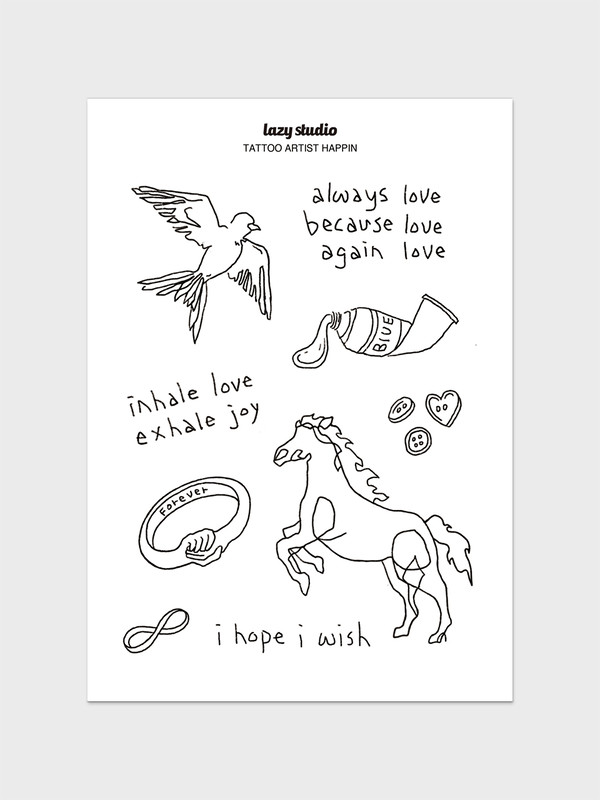 lazy studio
TATTOO ARTIST HAPPIN
always love
because love
again love
BlUE
inhale love
exhale joy
Forever
i hope i wish